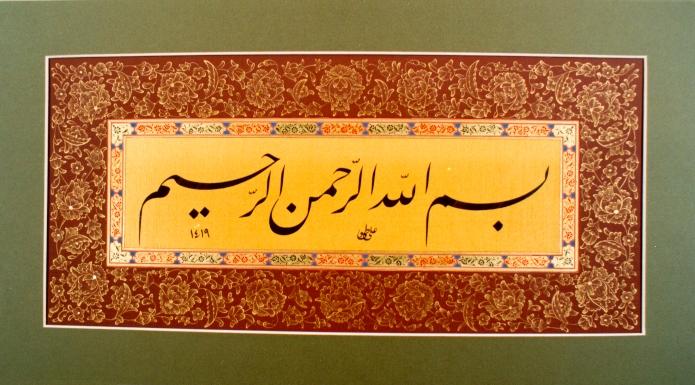 بسم الله الرّحمن الرّحيم
١٤١٩